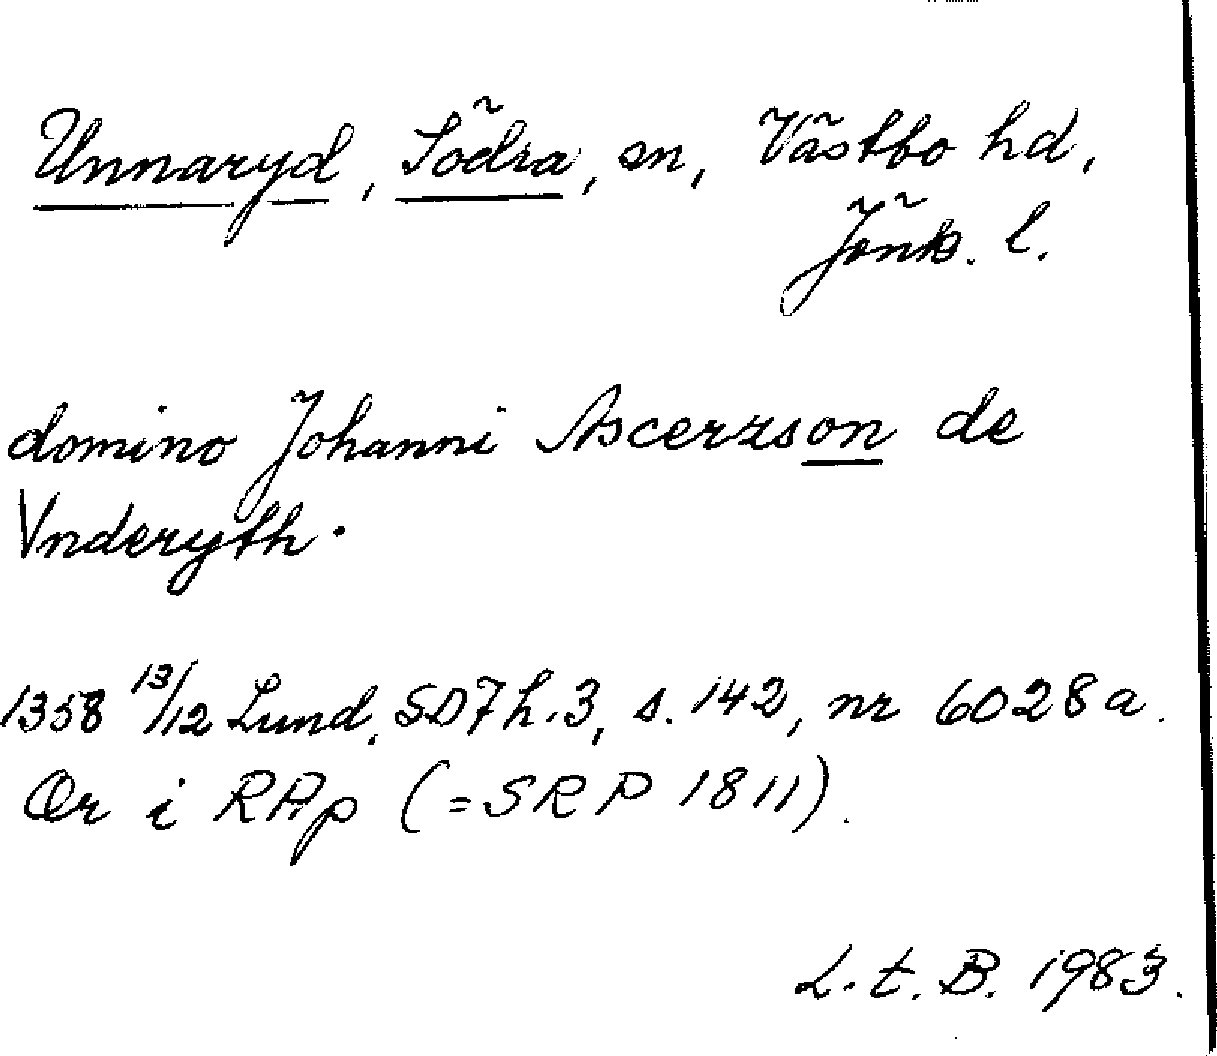 Unnaryd, Södra, sn, Västbo hd,
Jönk. l.
domino Johanni Ascerzson de
Vnderyth.
1358 13/12 Lund. SD7h.3, s. 142, nr 6028a.
Or i RAp (=SRP 1811).
L.t.B. 1983.